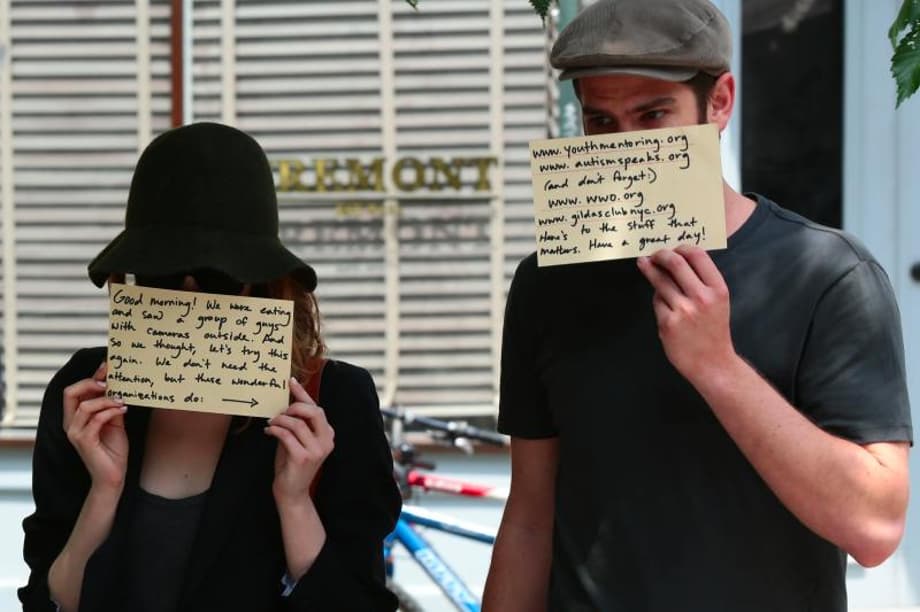 REMONT
Good morning! We were eating
and saw a group of guys
with cameras outside. And
so we thought, let's try this
again. We don't need the
attention, but these wonderful
organizations do: →
www.youthmentoring.org
www.autismspeaks.org
(and don't forget:)
www.wwo.org
www.gildasclubnyc.org
Here's to the stuff that
matters. Have a great day!